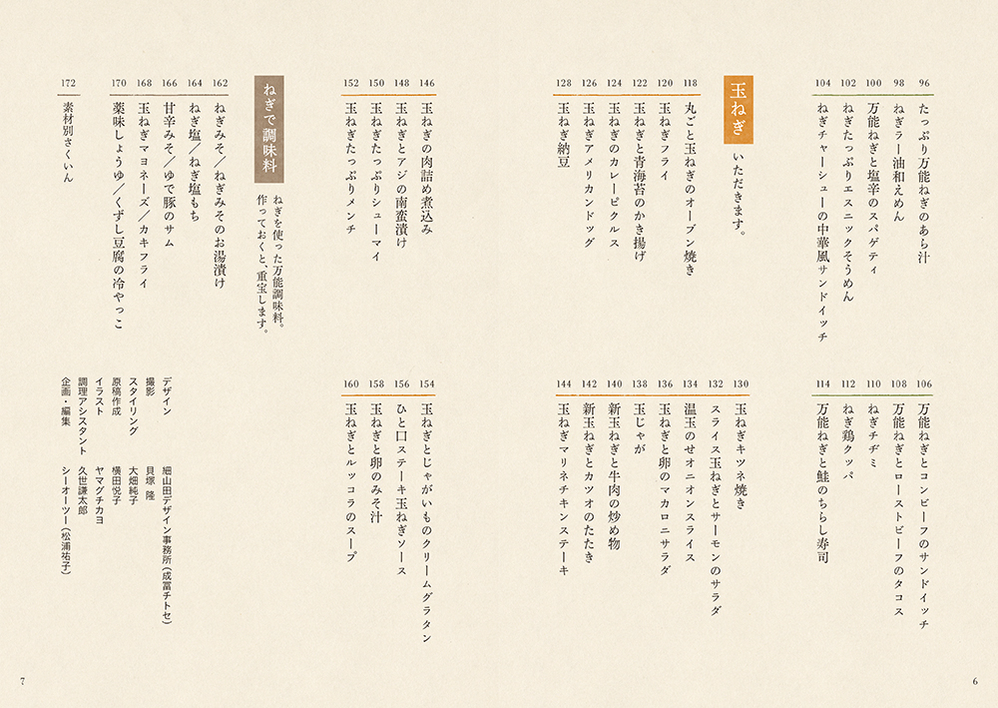 96 たっぷり万能ねぎのあら汁
98 ねぎラー油和えめん
100 万能ねぎと塩辛のスパゲティ
102 ねぎたっぷりエスニックそうめん
104 ねぎチャーシューの中華風サンドイッチ
106 万能ねぎとコンビーフのサンドイッチ
108 万能ねぎとローストビーフのタコス
110 ねぎチヂミ
112 ねぎ鶏クッパ
114 万能ねぎと鮭のちらし寿司
玉ねぎ いただきます。
118 丸ごと玉ねぎのオーブン焼き
120 玉ねぎフライ
122 玉ねぎと青海苔のかき揚げ
124 玉ねぎのカレーピクルス
126 玉ねぎアメリカンドッグ
128 玉ねぎ納豆
130 玉ねぎキツネ焼き
132 スライス玉ねぎとサーモンのサラダ
134 温玉のせオニオンスライス
136 玉ねぎと卵のマカロニサラダ
138 玉じゃが
140 新玉ねぎと牛肉の炒め物
142 新玉ねぎとカツオのたたき
144 玉ねぎマリネチキンステーキ
6
146 玉ねぎの肉詰め煮込み
148 玉ねぎとアジの南蛮漬け
150 玉ねぎたっぷりシューマイ
152 玉ねぎたっぷりメンチ
154 玉ねぎとじゃがいものクリームグラタン
156 ひと口ステーキ玉ねぎソース
158 玉ねぎと卵のみそ汁
160 玉ねぎとルッコラのスープ
ねぎで調味料
ねぎを使った万能調味料。
作っておくと、重宝します。
162 ねぎみそ／ねぎみそのお湯漬け
164 ねぎ塩／ねぎ塩もち
166 甘辛みそ／ゆで豚のサム
168 玉ねぎマヨネーズ／カキフライ
170 薬味しょうゆ／くずし豆腐の冷やっこ
172 素材別さくいん
デザイン 細山田デザイン事務所（成冨チトセ）
撮影 貝塚 隆
スタイリング 大畑純子
原稿作成 横田悦子
イラスト ヤマグチカヨ
調理アシスタント 久世謙太郎
企画・編集 シーオーツー（松浦祐子）
7